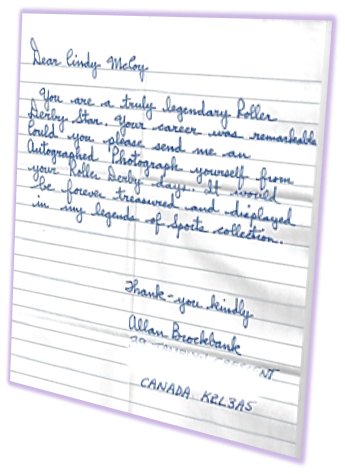 Dear Cindy McCoy
You are a truly legendary Roller
Derby Star. Your career was remarkable
Could you please send me an
Autographed Photograph yourself from
your Roller Derby days. It would
be forever treasured and displayed
in my legends of Sports collection.
Thank-you kindly
Allan Brockbank
CANADA K2L3A5